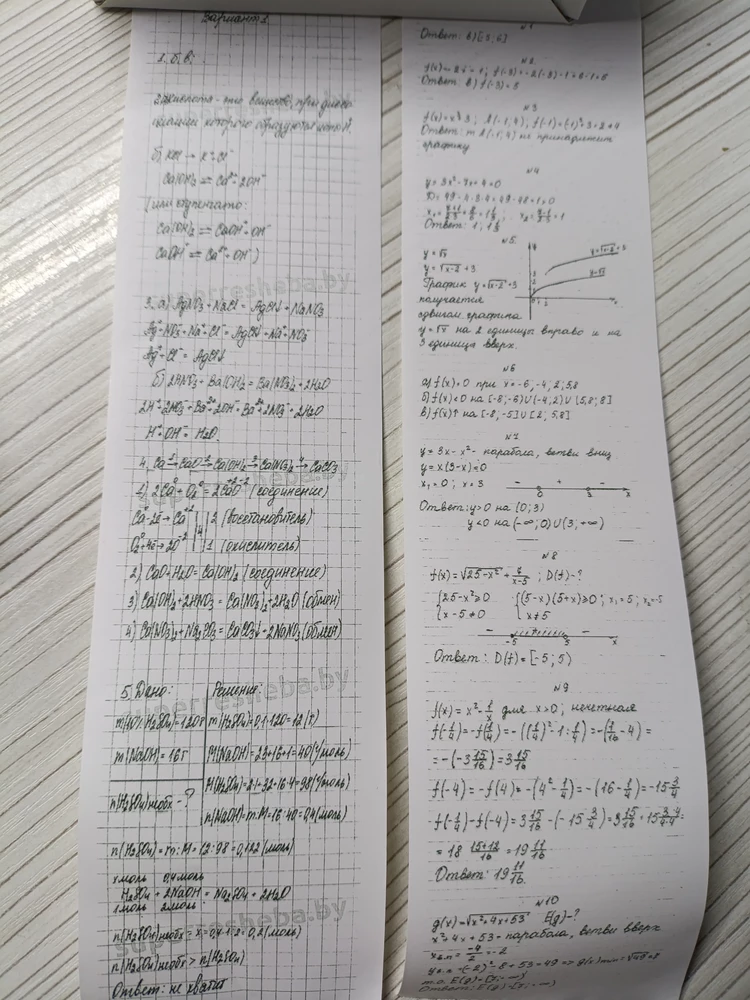 Вариант 1.
1. б. в.
2. Кислота - это вещество, при диссо
циации которого образуются ионы H⁺.
б) KCl → K⁺ + Cl⁻
Ca(OH)₂ ⇌ Ca²⁺ + 2OH⁻
(или ступенчато:
Ca(OH)₂ ⇌ CaOH⁺ + OH⁻
CaOH⁺ ⇌ Ca²⁺ + OH⁻)
3. а) AgNO₃ + NaCl = AgCl↓ + NaNO₃
Ag⁺ + NO₃⁻ + Na⁺ + Cl⁻ = AgCl↓ + Na⁺ + NO₃⁻
Ag⁺ + Cl⁻ = AgCl↓
б) 2HNO₃ + Ba(OH)₂ = Ba(NO₃)₂ + 2H₂O
2H⁺ + 2NO₃⁻ + Ba²⁺ + 2OH⁻ = Ba²⁺ + 2NO₃⁻ + 2H₂O
H⁺ + OH⁻ = H₂O
4. Ca →¹ CaO →² Ca(OH)₂ →³ Ca(NO₃)₂ →⁴ CaCO₃
1) 2Ca⁰ + O₂⁰ = 2Ca⁺²O⁻² (соединение)
Ca⁰ - 2e → Ca⁺² | | 2 (восстановитель)
O₂⁰ + 4e → 2O⁻² | 4 | 1 (окислитель)
2) CaO + H₂O = Ca(OH)₂ (соединение)
3) Ca(OH)₂ + 2HNO₃ = Ca(NO₃)₂ + 2H₂O (обмен)
4) Ca(NO₃)₂ + Na₂CO₃ = CaCO₃↓ + 2NaNO₃ (обмен)
5. Дано: Решение:
m(10% H₂SO₄) = 120г m(H₂SO₄) = 0,1·120 = 12 (г)
m(NaOH) = 16 г M(NaOH) = 23+16+1 = 40 (г/моль)
M(H₂SO₄) = 2·1+32+16·4 = 98 (г/моль)
n(H₂SO₄) необх - ?
n(NaOH) = m:M = 16:40 = 0,4 (моль)
n(H₂SO₄) = m:M = 12:98 = 0,122 (моль)
x моль 0,4 моль
H₂SO₄ + 2NaOH = Na₂SO₄ + 2H₂O
1 моль 2 моль
n(H₂SO₄) необх = x = 0,4·1:2 = 0,2 (моль)
n(H₂SO₄) необх > n(H₂SO₄)
Ответ: не хватит
superresheba.by
superresheba.by
superresheba.by
superresheba.by
Ответ: в) [-3; 6]
№2
f(x) = -2x - 1; f(-3) = -2·(-3) - 1 = 6 - 1 = 5
Ответ: в) f(-3) = 5
№3
f(x) = x² + 3; A(-1; 4); f(-1) = (-1)² + 3 = 4
графику
№4
y = 3x² - 7x + 4 = 0
D = 49 - 4·3·4 = 49 - 48 = 1 > 0
x₁ = (7+1)/(2·3) = 8/6 = 1 1/3; x₂ = (7-1)/(2·3) = 1
Ответ: 1; 1 1/3
№5
y = √x
y = √(x-2) + 3
График y = √(x-2) + 3
получается
сдвигом графика
y = √x на 2 единицы вправо и на
3 единицы вверх.
y = √(x-2) + 3
y = √x
№6
а) f(x) = 0 при x = -6, -4; 2; 5,8
б) f(x) < 0 на [-8; -6) ∪ (-4; 2) ∪ (5,8; 8]
в) f(x)↑ на [-8; -5] ∪ [2; 5,8]
№7
y = 3x - x² - парабола, ветви вниз
y = x(3-x) = 0
x₁ = 0; x = 3
- + -
0 3 x
Ответ: y > 0 на (0; 3)
y < 0 на (-∞; 0) ∪ (3; +∞)
№8
f(x) = √(25-x²) + 7/(x-5); D(f) - ?
{25 - x² ≥ 0 {(5-x)(5+x) ≥ 0; x₁ = 5; x₂ = -5
{x - 5 ≠ 0 {x ≠ 5
- + -
-5 5 x
Ответ: D(f) = [-5; 5)
№9
f(x) = x² - 1/x для x > 0; нечетная
f(-1/4) = -f(1/4) = -((1/4)² - 1 : 1/4) = -(1/16 - 4) =
= -(-3 15/16) = 3 15/16
f(-4) = -f(4) = -(4² - 1/4) = -(16 - 1/4) = -15 3/4
f(-1/4) - f(-4) = 3 15/16 - (-15 3/4) = 3 15/16 + 15 3·4/4·4 =
= 18 (15+12)/16 = 19 11/16
Ответ: 19 11/16.
№10
g(x) = √(x² + 4x + 53) E(g) - ?
x² + 4x + 53 - парабола, ветви вверх